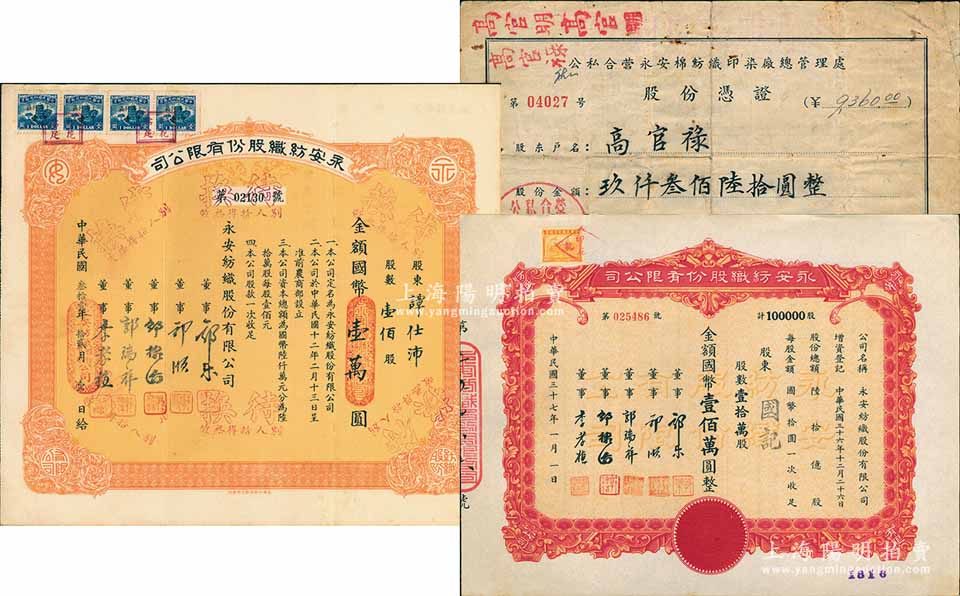 高官明 高官明
高官祿
公私合营永安棉紡織印染廠總管理處
股份憑證
第 04027 号
(￥ 9360.00)
股东戶名：高官祿
股份金額：玖仟叁佰陸拾圓整
公私合營
1 DOLLAR 1 DOLLAR 1 DOLLAR 1 DOLLAR
永安紡織股份有限公司
第 02130 號
股東 譚仕沛
股數 壹佰 股
金額國幣 壹萬 圓
一.本公司定名為永安紡織股份有限公司
二.本公司於中華民國十二年二月十三日呈
准前農商部設立
三.本公司資本總額為國幣陸仟萬元分為陸
拾萬股每股壹佰元
四.本公司股款一次收足
永安紡織股份有限公司
董事
董事
董事 郭瑞祥
董事
中華民國 叁拾 年 拾貳月 日給
永安紡織股份有限公司
第 025486 號
計 100000 股
公司名稱 永安紡織股份有限公司
增資登記 中華民國三十六年十二月二十六日
股份總額 陸拾億股
每股金額 國幣拾圓一次收足
股東 國記
股數壹拾萬股
金額國幣壹佰萬圓整
董事
董事
董事 郭瑞祥
董事
董事
中華民國三十七年一月一日
1818
上海陽明拍賣
www.yangmingauction.com
上海陽明拍賣
www.yangmingauction.com